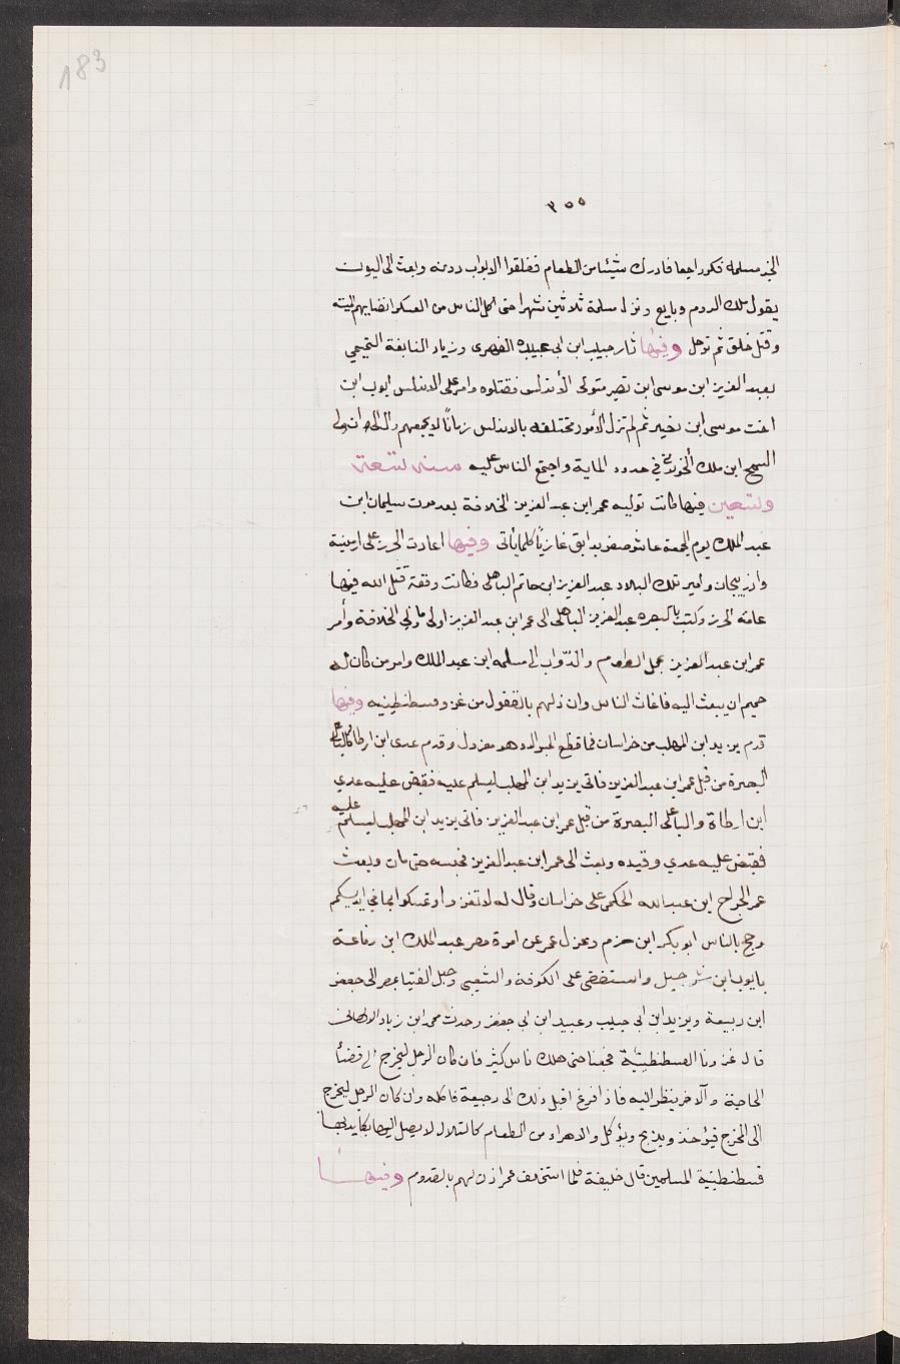 183
٣٥٥
الخبر مسلمة فكر راجعا فادرك شيئا من الطعام فغلقوا الابواب دونه وبعث الى اليون
يقول ملك الروم وبايع ونزل مسلمة ثلاثين شهرا حتى اكل الناس من العسكر الميته
وقتل خلق ثم ترحل وفيها ثار حبيب ابن ابي عبيده الفهرى وزياد النابغة التميمي
بعبد العزيز ابن موسى ابن نصير متولى الأندلس فقتلوه وامر على الاندلس ايوب ابن
اخت موسى ابن نصير ثم لم تزل الأمور مختلفة بالاندلس زمانًا لا يجمعهم وال الى ان ولى
السمح ابن ملك الخولاني في حدود الماية واجتمع الناس عليه سنة تسعة
وتسعين فيها كانت توليه عمر ابن عبد العزيز الخلافة بعد موت سليمان ابن
عبد الملك يوم الجمعة عاشر صفر بدابق غازيًا كلما يأتى وفيها اعادت الخزر على ارمنية
واذربيجان وامير تلك البلاد عبد العزيز ابن حاتم الباهلى فكانت وقعة قتل الله فيها
عامة الخزر وكتب بالبصره عبد العزيز الباهلى الى عمر ابن عبد العزيز اول ما ولى الخلافة وأمر
عمر ابن عبد العزيز بحمل الطعام والدّواب الى مسلمه ابن عبد الملك وامر من كان له
حميم ان يبعث اليه فاغاث الناس واذن لهم بالقفول من غزو قسطنطينيه وفيها
قدم يزيد ابن المهلب من خراسان فما قطع الجر الا وهو معزول وقدم عدى ابن ارطاة واليا على
البصرة من قبل عمر ابن عبد العزيز فاتى يزيد ابن المهلب ليسلم عليه فقبض عليه عدي
ابن ارطاة واليا على البصرة من قبل عمر ابن عبد العزيز فاتى يزيد ابن المهلب ليسلم عليه
فقبض عليه عدي وقيده وبعث الى عمر ابن عبد العزيز فحبسه حتى مات وبعث
عمر الجراح ابن عبد الله الحكمى على خراسان وقال له لا تغزوا وتمسكوا بما في ايديكم
وحج بالناس ابو بكر ابن حزم وعزل عمر عن امرة مصر عبد الملك ابن رفاعة
بايوب ابن شرحبيل واستقضى على الكوفة والشعبي وجعل الفتيا بمصر الى جعفر
ابن ربيعة ويزيد ابن ابى حبيب وعبيد ابن ابى جعفر وحدث محمد ابن زياد الالهانى
قال غزونا القسطنطينيّة فجعنا حتى هلك ناس كثير فان كان الرجل ليخرج الى قضاء
الحاجة والآخر ينظر اليه فاذا فرغ اقبل ذلك الى رجيعة فاكله وان كان الرجل ليخرج
الى المخرج فيؤخذ ويذبح ويؤكل والاهراء من الطعام كالتلال لا يصل اليها يكايد بها
قسطنطنيّة المسلمين قال خليفة فلما استخلف عمر اذن لهم بالقدوم وفيها